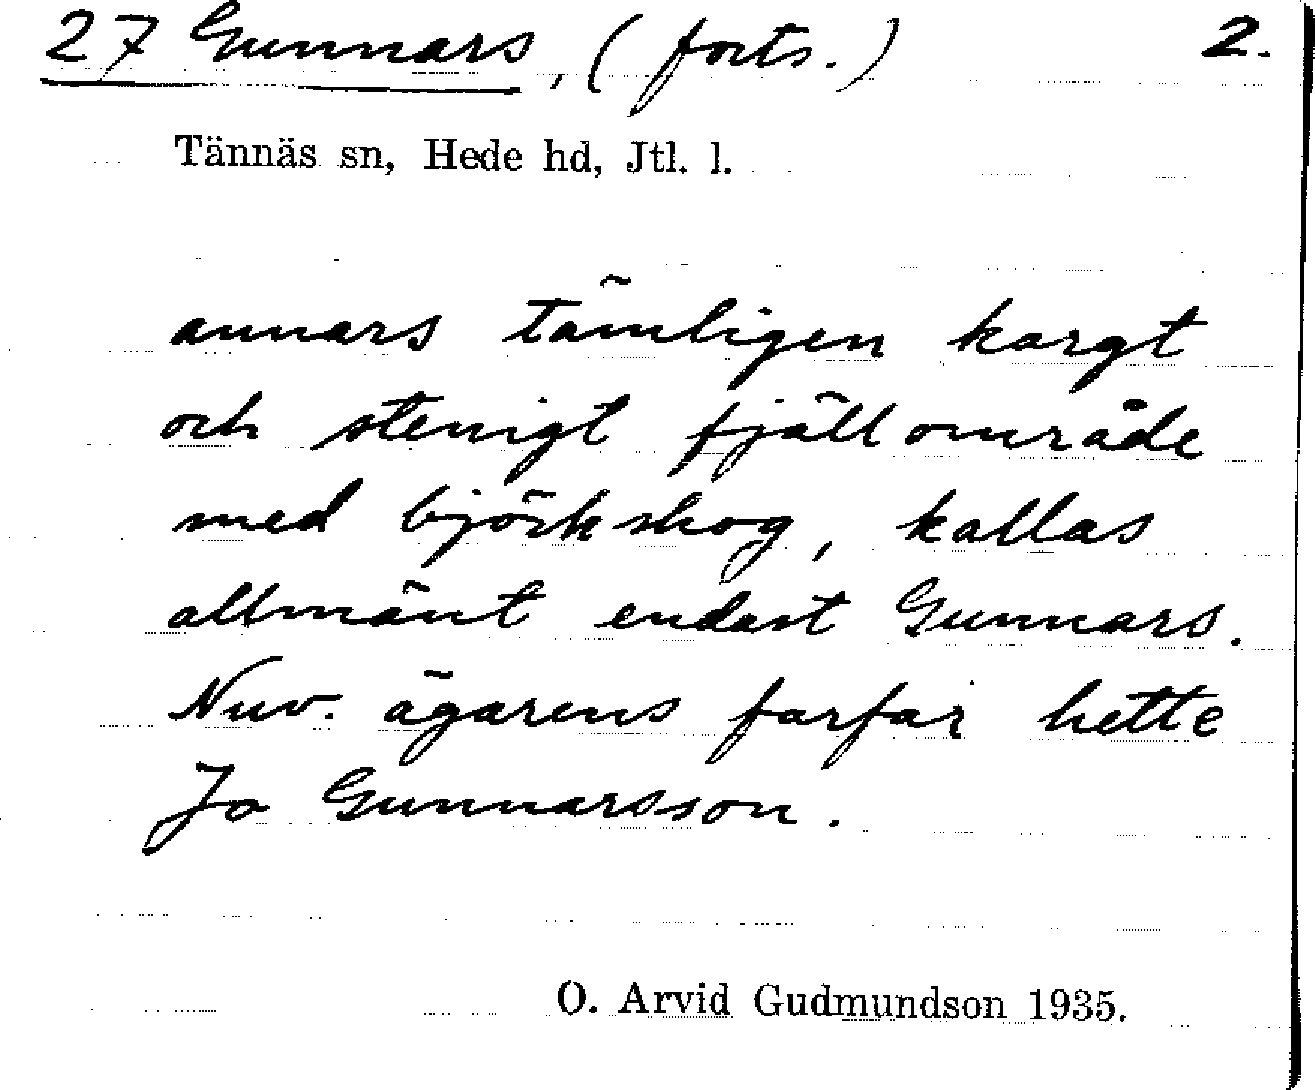 27 Gunnars, (forts.) 2.
Tännäs sn, Hede hd, Jtl. l.
annars tämligen kargt
och stenigt fjällområde
med björkskog, kallas
allmänt endast Gunnars.
Nuv. ägarens farfar hette
Jo Gunnarsson.
O. Arvid Gudmundson 1935.